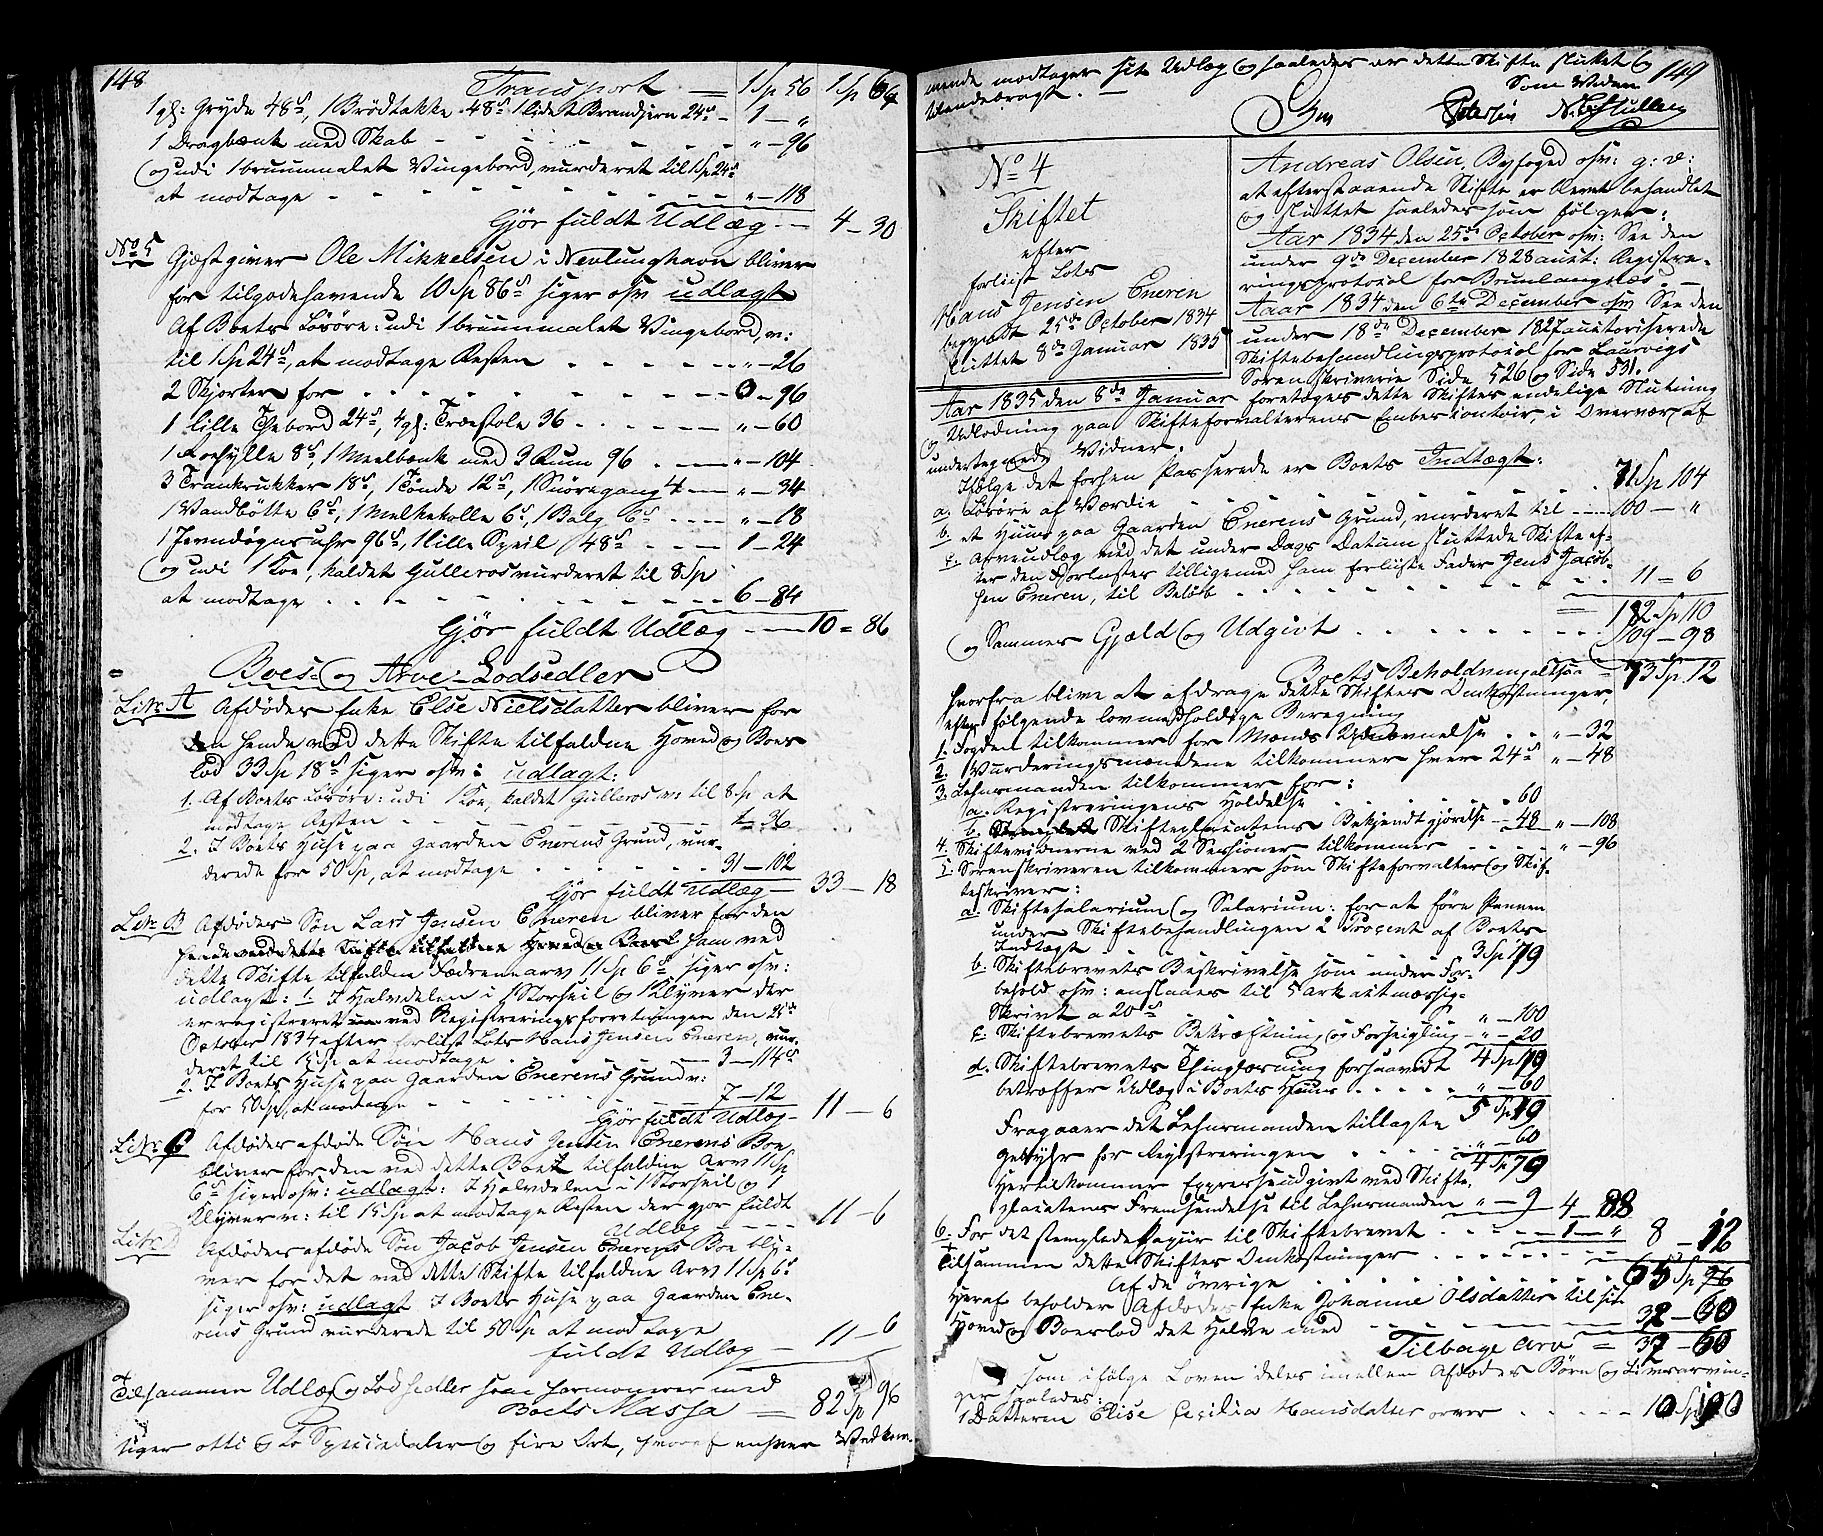 148
Transport — 1 Sp 56 1 Sp 64
1 gl: Gryde 48s, 1 Brödtakke 48s 1 lidet Brandjern 24s — 1 — "
1 Dragbænk med Skab - - - - " — 96
og udi 1 bruunmalet Vingebord, vurderet til 1 Sp 24s
at modtage - - - - " — 118
Gjör fuldt Udlæg — 4 — 30
No 5 Gjæstgiver Ole Mikkelsen i Nevlunghavn bliver
for tilgodehavende 10 Sp 86s siger osv udlagt
Af Boets Lösöre: udi 1 bruunmalet Vingebord, v:
til 1 Sp 24s, at modtage Resten . . . " — 26
2 Skjorter for - - - - 0 — 96
1 lille Thebord 24s, 4 gl: Træstole 36 . . . " — 60
1 Roehylle 8s, 1 Meelbænk med 3 Rum 96 . — " — 104
3 Trankrukker 18s, 1 Tönde 12s, 1 Snöregang 4 — " — 34
1 Vandbötte 6s, 1 Melkekolle 6s, 1 Balg 6s — " — 18
1 Jerndögnsuhr 96s, 1 lille Speil 48s - - 1 — 24
og udi 1 Koe, kaldet Gulleros vurderet til 8 Sp
at modtage . . . . 6 — 84
Gjör fuldt Udlæg — 10 = 86
Boes- og Arve-Lodsedler
Litr A Afdödes Enke Else Nielsdatter bliver for
den hende ved dette Skifte tilfaldne Hoved og Boes
lod 33 Sp 18s siger osv: udlagt:
1. Af Boets Lösöre: udi 1 Koe, kaldet Gulleros v: til 8 Sp at
modtage Resten - - - 1 — 36
2. I Boets Huse paa Gaarden Enerens Grund, vur-
derede for 50 Sp, at modtage . . . 31 — 102
Gjör fuldt Udlæg — 33 — 18
Litr B Afdödes Sön Lars Jensen Eneren bliver for den
ham ved
dette Skifte tilfaldne Fædrenearv 11 Sp 6s siger osv:
udlagt: 1. I Halvdelen i 1 Storseil og 1 Klyver der
er registreret ved Registreringsforretningen den 25de
October 1834 efter forlist Lots Hans Jensen Eneren, vur-
deret til 15 Sp at modtage . . . 3 — 114s
2. I Boets Huse paa Gaarden Enerens Grund v:
for 50 Sp, at modtage - - - 7 — 12
Gjör fuldt Udlæg — 11 — 6
Litr C Afdödes afdöde Sön Hans Jensen Enerens Boe
bliver for den ved dette Boet tilfaldne Arv 11 Sp
6s siger osv: udlagt: I Halvdelen i 1 Storseil og 1
Klyver v: til 15 Sp at modtage Resten der gjör fuldt
Udlæg - - - - 11 — 6
Litr D Afdödes afdöde Sön Jacob Jensen Enerens Boe bli-
ver for det ved dette Skifte tilfaldne Arv 11 Sp 6s
siger osv: udlagt I Boets Huse paa Gaarden Ene-
rens Grund vurderede til 50 Sp at modtage
fuldt Udlæg — 11 — 6
Tilsammen Udlæg og Lodsedler som harmonerer med
Boets Massa = 82 Sp 96
siger otti og to Speciedaler og fire Ort, hvoraf enhver Vedkom-
149
mende modtager sit Udlæg og saaledes er dette Skifte sluttet og
tilendebragt. — Som Viden
Olsen Petersen
No 4
Skiftet
efter
forlist Lots
Hans Jensen Eneren
begyndt 25de October 1834
sluttet 8de Januar 1835
Andreas Olsen, Byfoged osv: g: v:
at efterstaaende Skifte er blevet behandlet
og sluttet saaledes som fölger:
Aar 1834 den 25de October osv: See den
under 9de December 1828 autt: Registre-
ringsprotocol for Brunlangnæs. —
Aar 1834 den 6te December osv See den
under 18de December 1827 autoriserede
Skiftebehandlingsprotocol for Laurvigs
Sorenskriverie Side 526 og Side 531.
Aar 1835 den 8de Januar foretoges dette Skiftes endelige Slutning
og Udlodning paa Skifteforvalterens Embedscontoir, i Overvær af
undertegnede Vidner.
Ifölge det forhen Passerede er Boets Indtægt:
a. Lösöre af Værdie - - - - 71 Sp 104
b. et Huus paa Gaarden Enerens Grund, vurderet til — 100 — "
c. Arveudlæg ved det under Dags Datum sluttede Skifte ef-
ter den Forlistes tilligemed ham forliste Fader Jens Jacob-
sen Eneren, til Belöb - - - - 11 = 6
= 182 Sp 110
og Sammes Gjæld og Udgivt . . . . 109 — 98
Boets Beholdning altsaa = 73 Sp 12
hvorfra blive at afdrage dette Skiftes Omkostninger,
efter fölgende lovmedholdige Beregning
1. Fogden tilkommer for Mænds Udnævnelse . . " — 32
2. Vurderingsmændene tilkommer hver 24s " — 48
3. Lehnsmanden tilkommer for:
a. Registreringens Holdelse . . . 60
b. Skifteplacatens Bekjendtgjörelse — 48 " — 108
4. Skiftevidnerne ved 2 Sessioner tilkommer - - " — 96
5. Sorenskriveren tilkommer som Skifteforvalter og Skif-
teskriver:
a. Skiftesalarium og Salarium: for at före Pennen
under Skiftebehandlingen 2 Procent af Boets
Indtægt - - - - 3 Sp 79
b. Skiftebrevets Beskrivelse som under For-
behold osv: anslaaes til 5 Ark aktmæssig-
Skrivt a 20s - - - " — 100
c. Skiftebrevets Bekræftning og Forseigling — " — 20
4 Sp 79
d. Skiftebrevets Thinglæsning forsaavidt
betræffer Udlæg i Boets Huus . . . " — 60
5 Sp 19
Fragaaer det Lehnsmanden tillagte
Gebyhr for Registreringen . . . " — 60
4 Sp 79
Hertilkommer Expresseudgivt med Skifte-
placatens Fremsendelse til Lehnsmanden " — 9 4 — 88
6. For det stemplede Papiir til Skiftebrevet . . . 1 — "
Tilsammen dette Skiftes Omkostninger . . . 8 — 12
Af de övrige . . . . 65 Sp
Heraf beholder Afdödes Enke Johanne Olsdatter til sit
Hoved og Boeslod det Halve med - - - 32 — 60
Tilbage Arv = 32 — 60
som ifölge Loven deles imellem Afdödes Börn og Livsarvin-
ger saaledes:
1 Datteren Elise Cecilia Hansdatter arver . . . 10 Sp 100